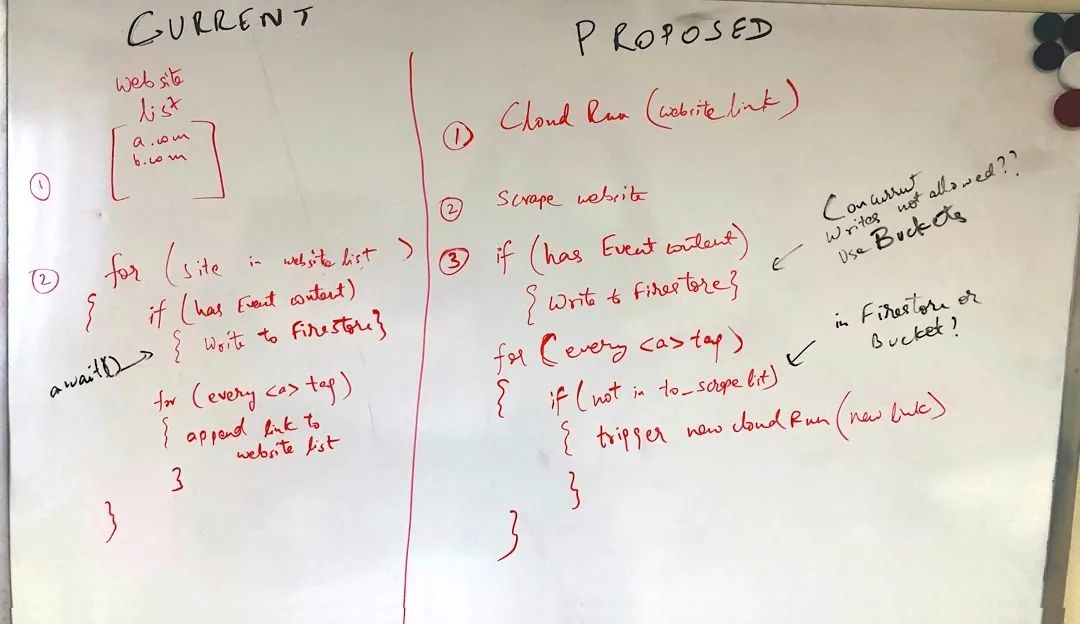 CURRENT
website
list
[ a.com
b.com ]
①
② for (site in website list)
{ if (has Event content)
{ Write to Firestore}
await()
for (every <a> tag)
{ append link to
website list
}
}
PROPOSED
① Cloud Run (website link)
② Scrape website
③ if (has Event content)
{ Write to Firestore}
Concurrent
Writes not allowed??
Use Buckets
for (every <a> tag)
{ if (not in to_scrape list)
in Firestore or
Bucket?
{ trigger new cloud Run (new link)
}
}